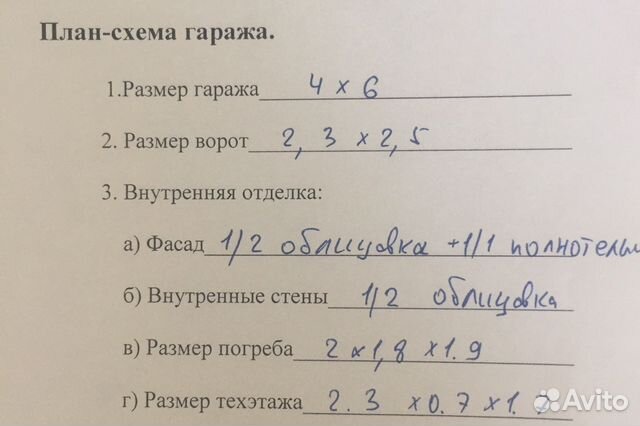 План-схема гаража.
1.Размер гаража 4 x 6
2. Размер ворот 2, 3 x 2, 5
3. Внутренняя отделка:
а) Фасад 1/2 облицовка +1/1 полнотелы
б) Внутренные стены 1/2 облицовка
в) Размер погреба 2 x 1,8 x 1.9
г) Размер техэтажа 2.3 x 0.7 x 1.
Avito